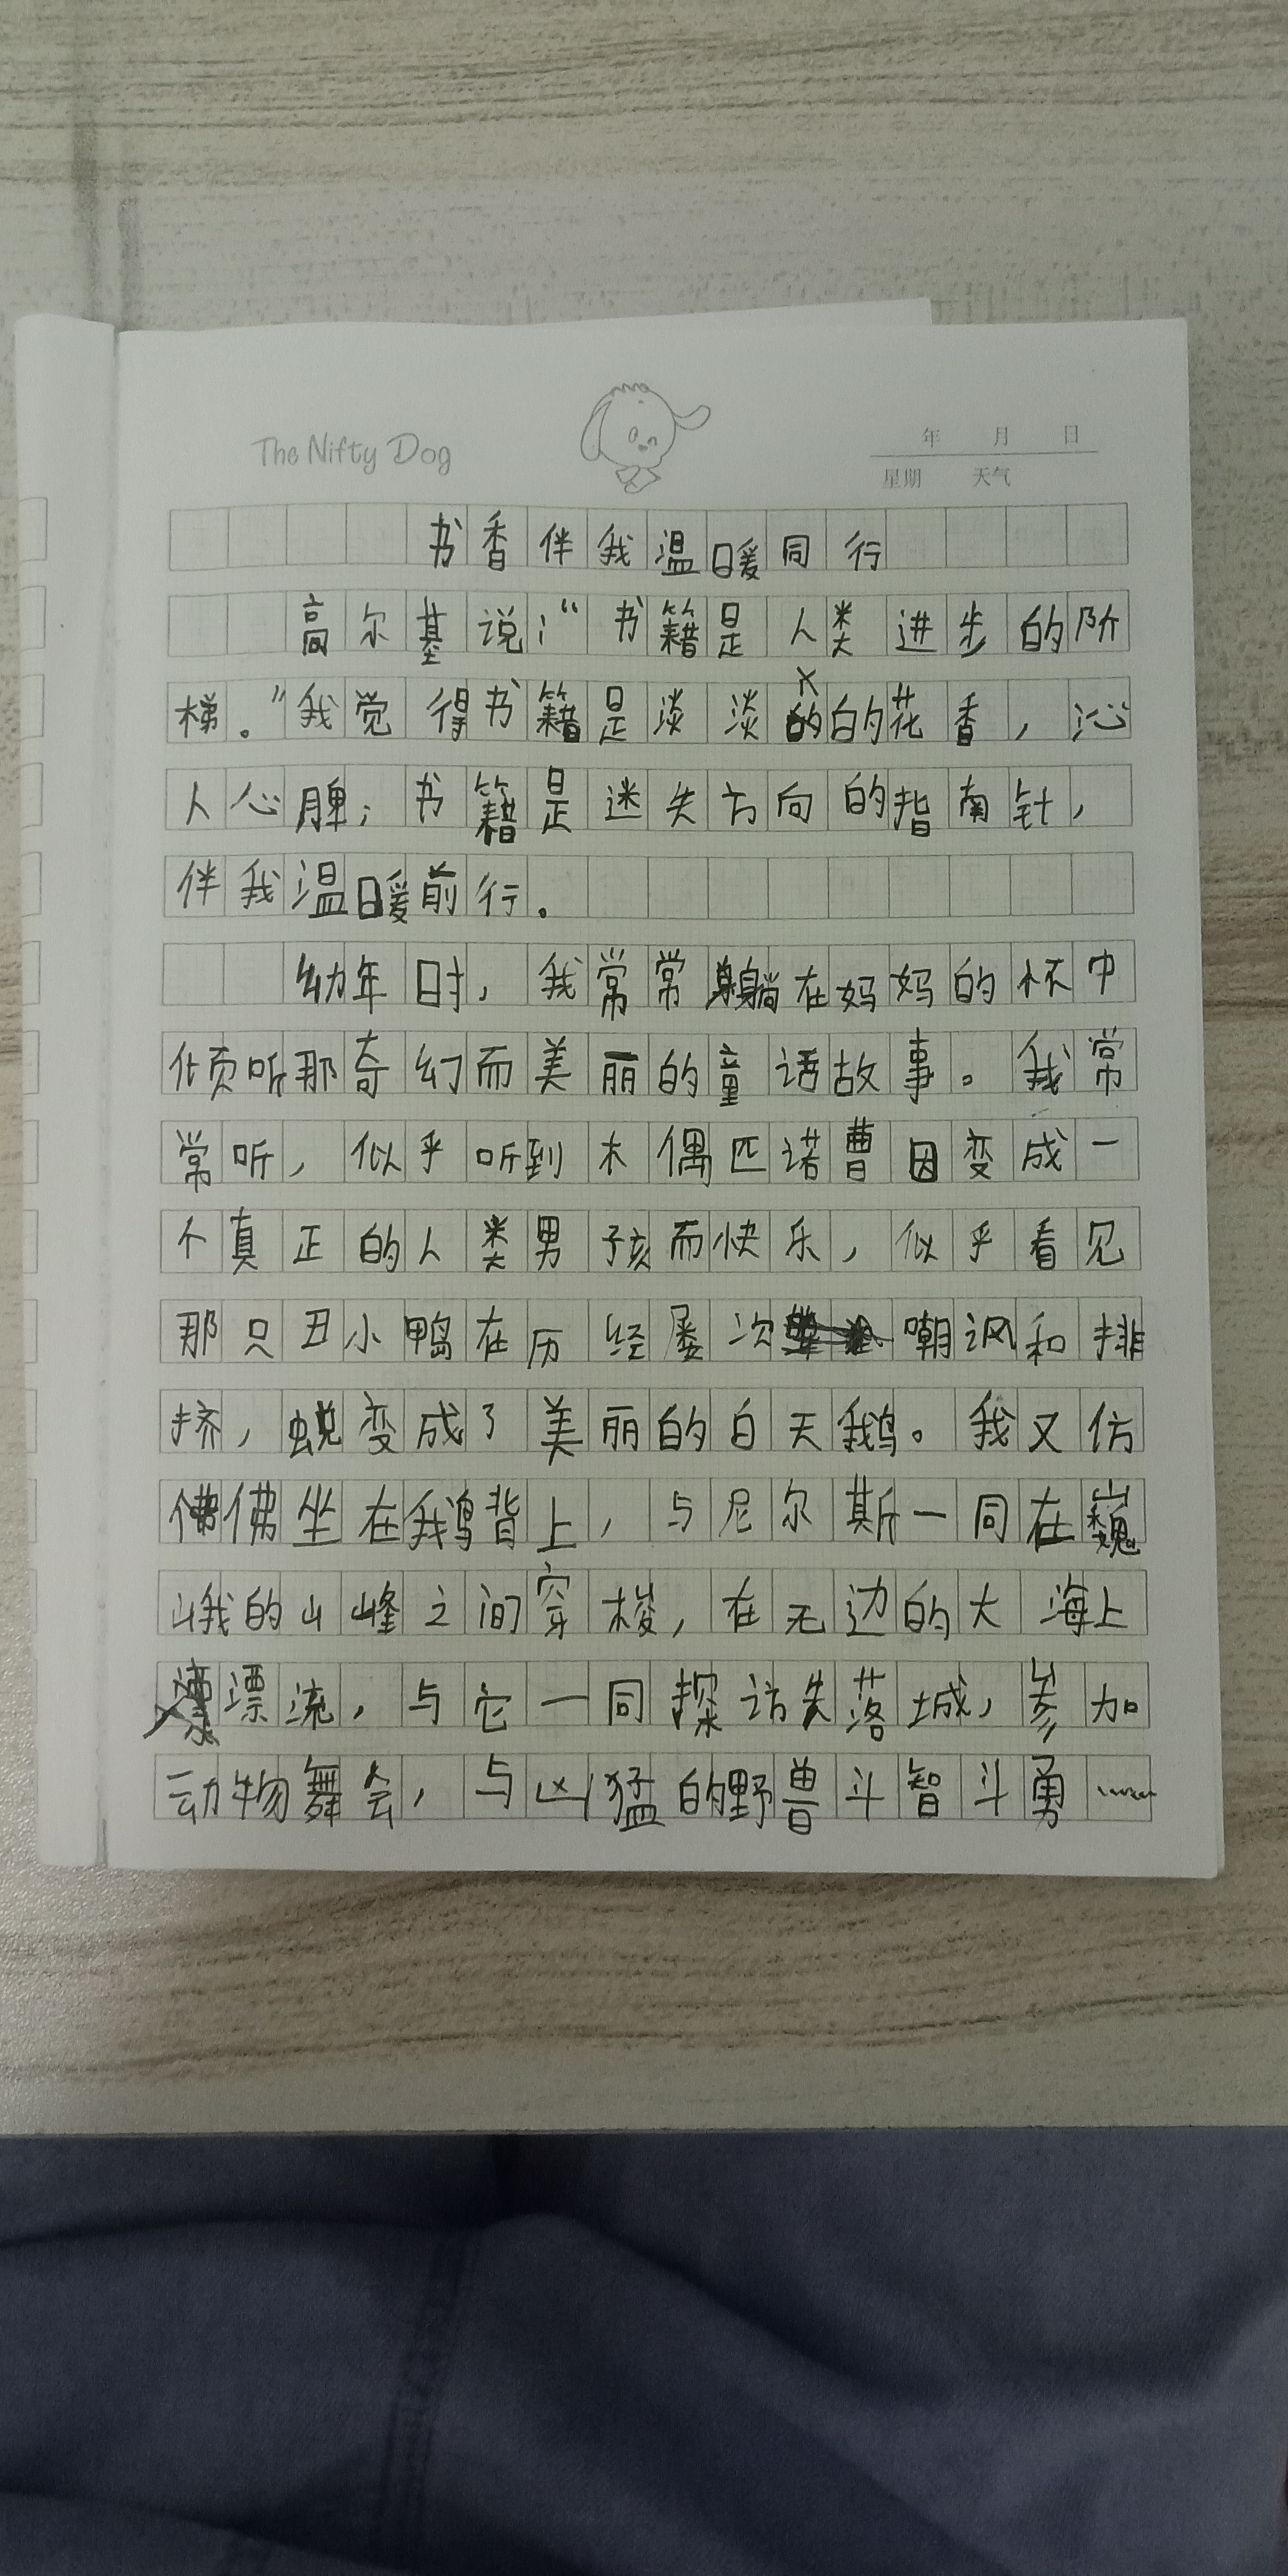 The Nifty Dog
年 月 日
星期 天气
书香伴我温暖同行
高尔基说:“书籍是人类进步的阶
梯。”我觉得书籍是淡淡的花香，沁
人心脾；书籍是迷失方向的指南针，
伴我温暖前行。
幼年时，我常常躺在妈妈的怀中
倾听那奇幻而美丽的童话故事。我常
常听，似乎听到木偶匹诺曹因变成一
个真正的人类男孩而快乐，似乎看见
那只丑小鸭在历经屡次嘲讽和排
挤，蜕变成了美丽的白天鹅。我又仿
佛佛坐在鹅背上，与尼尔斯一同在巍
峨的山峰之间穿梭，在无边的大海上
漂流，与它一同探访失落城，参加
动物舞会，与凶猛的野兽斗智斗勇……